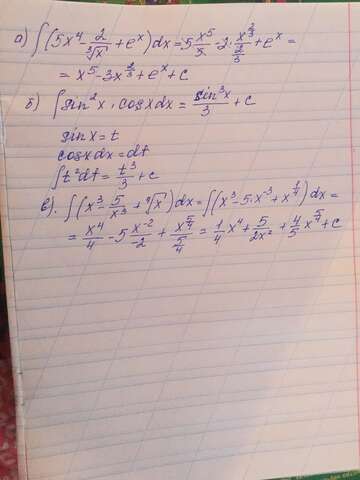 а) ∫(5x⁴ - 2/∛x + eˣ)dx = 5x⁵/5 - 2·x^(2/3)/(2/3) + eˣ =
= x⁵ - 3x^(2/3) + eˣ + c
б) ∫sin²x · cosxdx = sin³x/3 + c
sinx = t
cosxdx = dt
∫t²dt = t³/3 + c
в). ∫(x³ - 5/x³ + ⁴√x)dx = ∫(x³ - 5·x⁻³ + x^(1/4))dx =
= x⁴/4 - 5x⁻²/-2 + x^(5/4)/(5/4) = 1/4 x⁴ + 5/2x² + 4/5 x^(5/4) + c